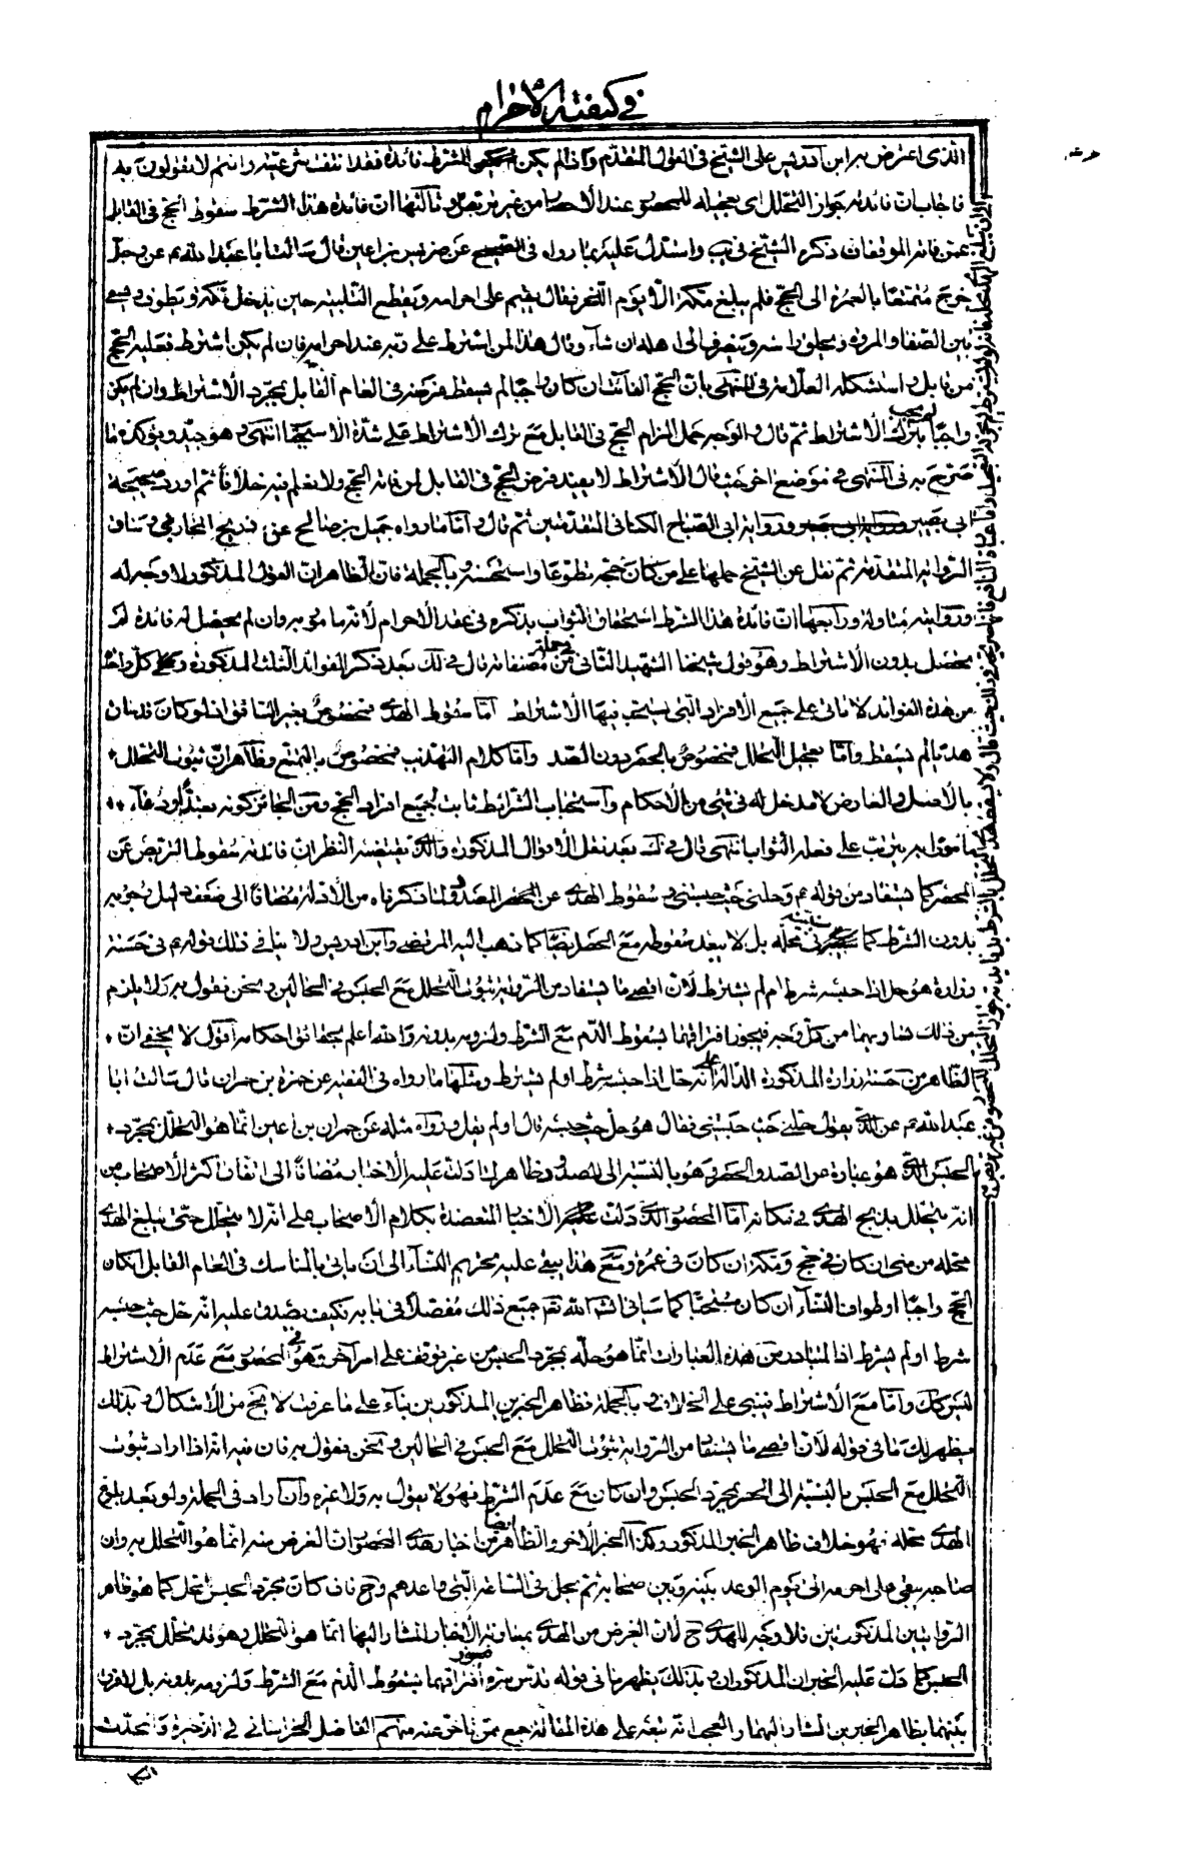 في كيفية الاحرام
الذي اعترض به ابن ادريس على الشيخ في القول المتقدم واذا لم يكن للشرط فائدة فقد انتفت شرعيته وانتم لا تقولون به
فاجاب بان فائدته جواز التحلل اي تعجيله للمحصور عند الاحصار من غير تربص وثالثها ان فائدة هذا الشرط سقوط الحج في القابل
عمن فاته الموقفان ذكره الشيخ في يب واستدل عليه بما رواه في الصحيح عن ضريس بن اعين قال سالت ابا عبد الله ع عن رجل
خرج متمتعا بالعمرة الى الحج فلم يبلغ مكة الا يوم النحر فقال يقيم على احرامه ويقطع التلبية حين يدخل مكة ويطوف ويسعى
بين الصفا والمروة ويحلق راسه وينصرف الى اهله ان شاء وقال هذا لمن اشترط على ربه عند احرامه فان لم يكن اشترط فعليه الحج
من قابل واستشكله العلامة في المنتهى بان الحج الفائت ان كان واجبا لم يسقط فرضه في العام القابل بمجرد الاشتراط وان لم يكن
واجبا لم يجب بترك الاشتراط ثم قال والوجه حمل الزام الحج في القابل مع ترك الاشتراط على شدة الاستحباب انتهى وهو جيد ويؤكده ما
صرح به في المنتهى في موضع اخر حيث قال الاشتراط لا يفيد فرض الحج في القابل لمن فاته الحج ولا نعلم فيه خلافا ثم اورد صحيحة
ابي بصير ورواية ابي الصباح الكناني المتقدمتين ثم قال واما ما رواه جميل بن صالح عن ذريح المحاربي وساق
الرواية المتقدمة ثم نقل عن الشيخ حملها على من كان حجه تطوعا واستحسنه وبالجملة فان الظاهر ان القول المذكور لا وجه له
وروايته متاولة ورابعها ان فائدة هذا الشرط استحقاق الثواب بذكره في عقد الاحرام لانه مامور به وان لم يحصل له فائدة لم
تحصل بدون الاشتراط وهو قول شيخنا الشهيد الثاني في جملة من مصنفاته قال في لك بعد ذكر الفوائد الثلث المذكورة وكل واحدة
من هذه الفوائد لا تاتي على جميع الافراد التي يستحب فيها الاشتراط اما سقوط الهدي فمخصوص بغير السائق اذ لو كان قد ساق
هديا لم يسقط واما تعجيل التحلل فمخصوص بالحصر دون الصد واما كلام التهذيب فمخصوص بالتمتع وظاهر ان ثبوت التحلل
بالاصل والعارض لا مدخل له في شيء من الاحكام واستحباب الشرائط ثابت لجميع افراد الحج ومن الجائز كونه تعبدا او دعاء
مامورا به يترتب على فعله الثواب انتهى قال في لك بعد نقل الاقوال المذكورة والذي يقتضيه النظر ان فائدته سقوط التربص عن
المحصر كما يستفاد من قوله ع وحلني حيث حبستني وسقوط الهدي عن المصدود لما ذكرناه من الادلة مضافا الى ضعف دليل وجوبه
بدون الشرط كما سنبينه في محله بل لا يبعد سقوطه مع الحصر ايضا كما ذهب اليه المرتضى وابن ادريس ولا ينافي ذلك قوله ع في حسنة
زرارة هو حل اذا حبسه شرط ام لم يشترط لان اقصى ما يستفاد من الرواية ثبوت التحلل مع الحبس في الحالين ونحن نقول به ولا يلزم
من ذلك تساويهما من كل وجه فيجوز افتراقهما بسقوط الدم مع الشرط ولزومه بدونه والله اعلم بحقائق احكامه اقول لا يخفى ان
الظاهر من حسنة زرارة المذكورة الدالة على انه حل اذا حبسه شرط او لم يشترط ومثلها ما رواه في الفقيه عن حمزة بن حمران قال سالت ابا
عبد الله ع عن الذي يقول حلني حيث حبستني فقال هو حل حيث حبسه قال او لم يقل ورواه مثله عن حمران بن اعين انما هو التحلل بمجرد
الحبس الذي هو عبارة عن الصد والحصر وهو بالنسبة الى المصدود ظاهر لما دلت عليه الاخبار مضافا الى اتفاق اكثر الاصحاب من
انه يتحلل بذبح الهدي في مكانه اما المحصور الذي دلت الاخبار المعتضدة بكلام الاصحاب على انه لا يتحلل حتى يبلغ الهدي
محله من منى ان كان في حج ومكة ان كان في عمرة ومع هذا يبقى عليه تحريم النساء الى ان ياتي بالمناسك في العام القابل ان كان
الحج واجبا او طواف النساء ان كان مستحبا كما سياتي انشاء الله تعم جميع ذلك مفصلا في بابه فكيف يصدق عليه انه حل حيث حبسه
شرط او لم يشرط اذ المتبادر من هذه العبارات انما هو حله بمجرد الحبس من غير توقف على امر اخر وهو في المحصور مع عدم الاشتراط
ليس كك واما مع الاشتراط فيبنى على الخلاف وبالجملة فظاهر الخبرين المذكورين بناء على ما عرفت لا يخ من الاشكال وبذلك
يظهر لك ما في قوله لان اقصى ما يستفاد من الرواية ثبوت التحلل مع الحبس في الحالين ونحن نقول به فان فيه انه اذا اراد ثبوت
التحلل مع الحبس بالنسبة الى الحصر بمجرد الحبس وان كان مع عدم الشرط فهو لا يقول به ولا غيره وان اراد في الجملة ولو بعد بلوغ
الهدي محله فهو خلاف ظاهر الخبر المذكور وكذا الخبر الاخر والظاهر ايضا من اخبار هدي المحصور ان الغرض منه انما هو التحلل به وان
صاحبه يبقى على احرامه الى يوم الوعد بينه وبين اصحابه ثم يحل في الساعة التي واعدهم وح فان كان بمجرد الحبس يتحلل كما هو ظاهر
الروايتين المذكورتين فلا وجه للهدي ح لان الغرض من الهدي بمعاونة الاخبار المشار اليها انما هو التحلل وهو قد تحلل بمجرد
الحبس كما دلت عليه الخبران المذكوران وبذلك يظهر ما في قوله قدس سره فيجوز افتراقهما بسقوط الدم مع الشرط ولزومه بدونه بل لا فرق
بينهما بظاهر الخبرين المشار اليهما والعجب انه تبعه على هذه المقالة جمع ممن تاخر عنه منهم الفاضل الخراساني في الذخيرة والمحدث